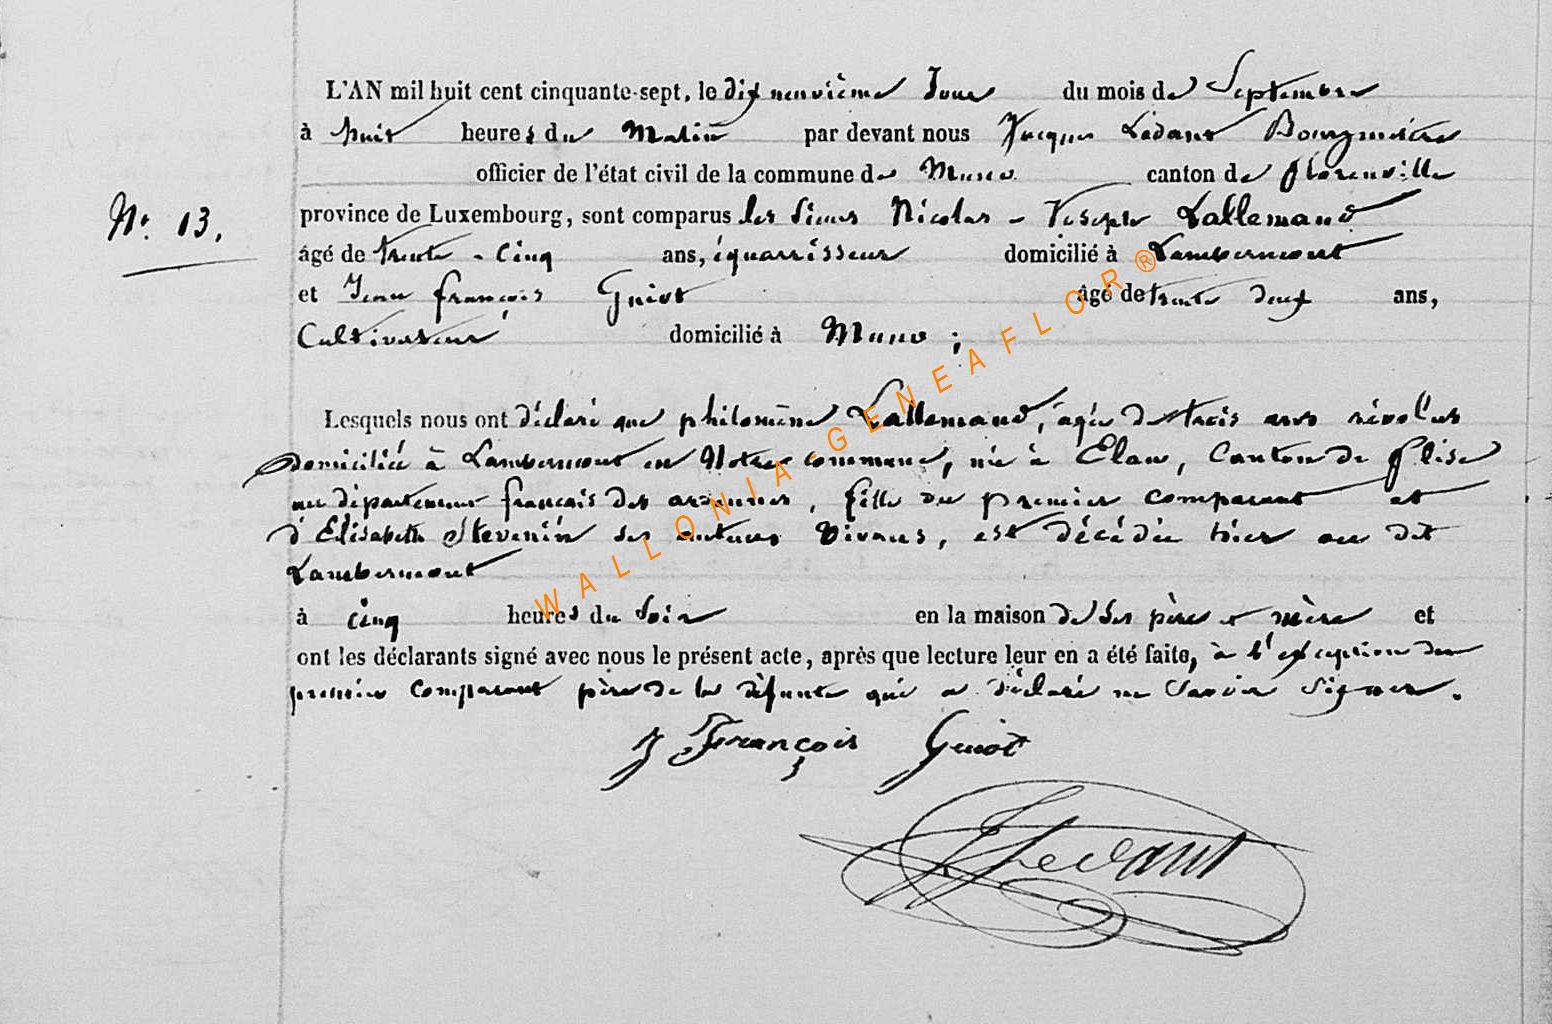 L'AN mil huit cent cinquante-sept, le dix neuvième Jour du mois de Septembre
à huit heures du Matin par devant nous Jacques Ledant Bourgmestre
officier de l'état civil de la commune de Muno canton de florenville
N°. 13.
province de Luxembourg, sont comparus les Sieurs Nicolas - Joseph Lallemand
âgé de trente - cinq ans, équarrisseur domicilié à Lambermont
et Jean françois Guiot âgé de trente deux ans,
Cultivateur domicilié à Muno ;
Lesquels nous ont déclaré que philomène Lallemand, agée de trois ans révolus
domiciliée à Lambermont en Notre commune, née à Elan, Canton de flize
au département français des ardennes, fille du premier comparant et
d'Elisabeth Stevenin ses auteurs Vivans, est décédée hier au dit
Lambermont
à cinq heures du Soir en la maison de ses père et mère et
ont les déclarants signé avec nous le présent acte, après que lecture leur en a été faite, à l'exception du
premier comparant père de la défunte qui a déclaré ne Savoir Signer.
J François Guiot
Ledant
WALLONIA-GENEAFLOR®